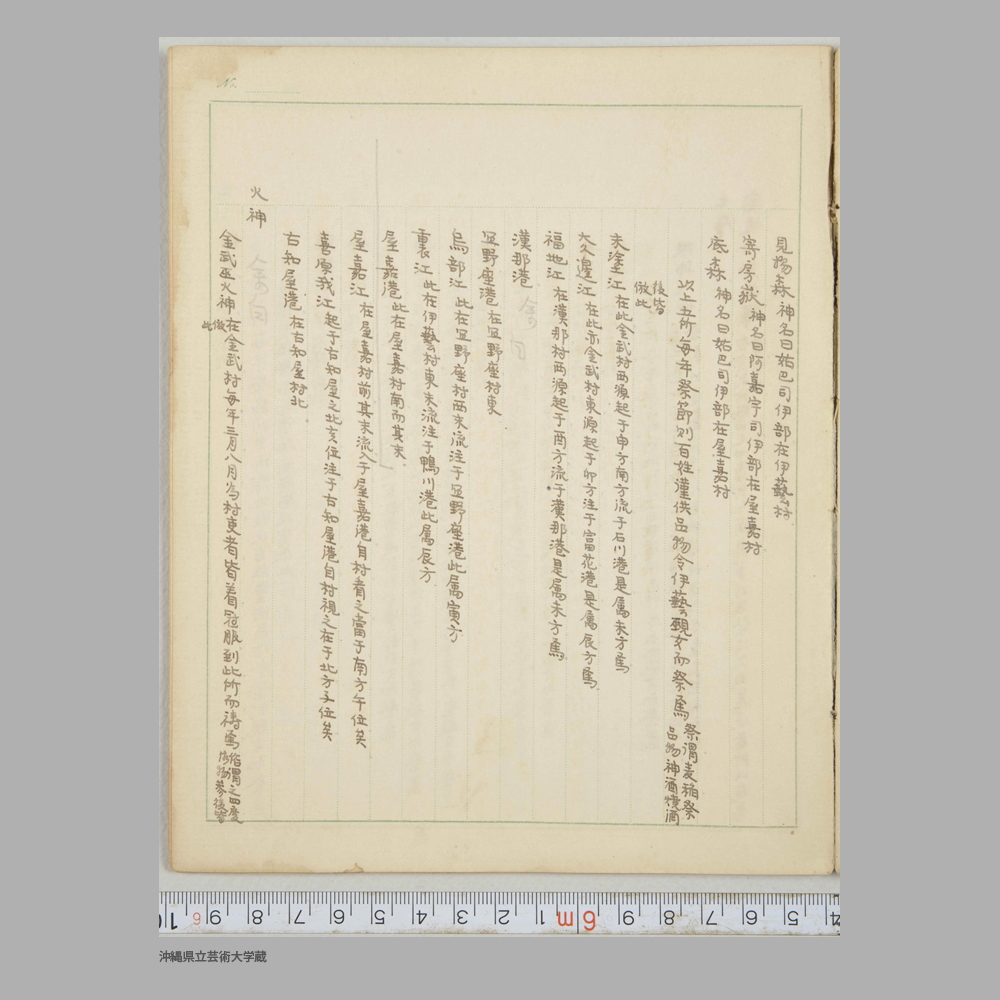 見揚森 神名曰姑巴司伊部在伊藝村
寄房嶽 神名曰阿嘉宇司伊部在屋嘉村
底森 神名曰姑巴司伊部在屋嘉村
以上五所毎年祭節則百姓謹供品物令伊藝覡女而祭焉 祭謂麦稲祭
品物神酒燒酒
後皆
倣此
未塗江 在此金武村西源起于申方南方流于石川港是属未方焉
大久邊江 在此亦金武村東源起于卯方注于富花港是属辰方焉
福地江 在漢那村西源起于酉方流于漢那港是属未方焉
漢那港
冝野座港 在冝野座村東
烏部江 此在冝野座村西末流注于冝野座港此属寅方
裏江 此在伊藝村東末流注于鴨川港此属辰方
屋嘉港 此在屋嘉村南而其末
屋嘉江 在屋嘉村前其末流入于屋嘉港自村看之當于南方午位矣
喜原我江 起于古知屋之北亥位注于古知屋港自村視之在于北方子位矣
古知屋港 在古知屋村北
火神
金武巫火神 倣
此 在金武村毎年三月八月為村吏者皆着冠服到此所而祷焉 俗謂之四度
後皆
沖縄県立芸術大学蔵